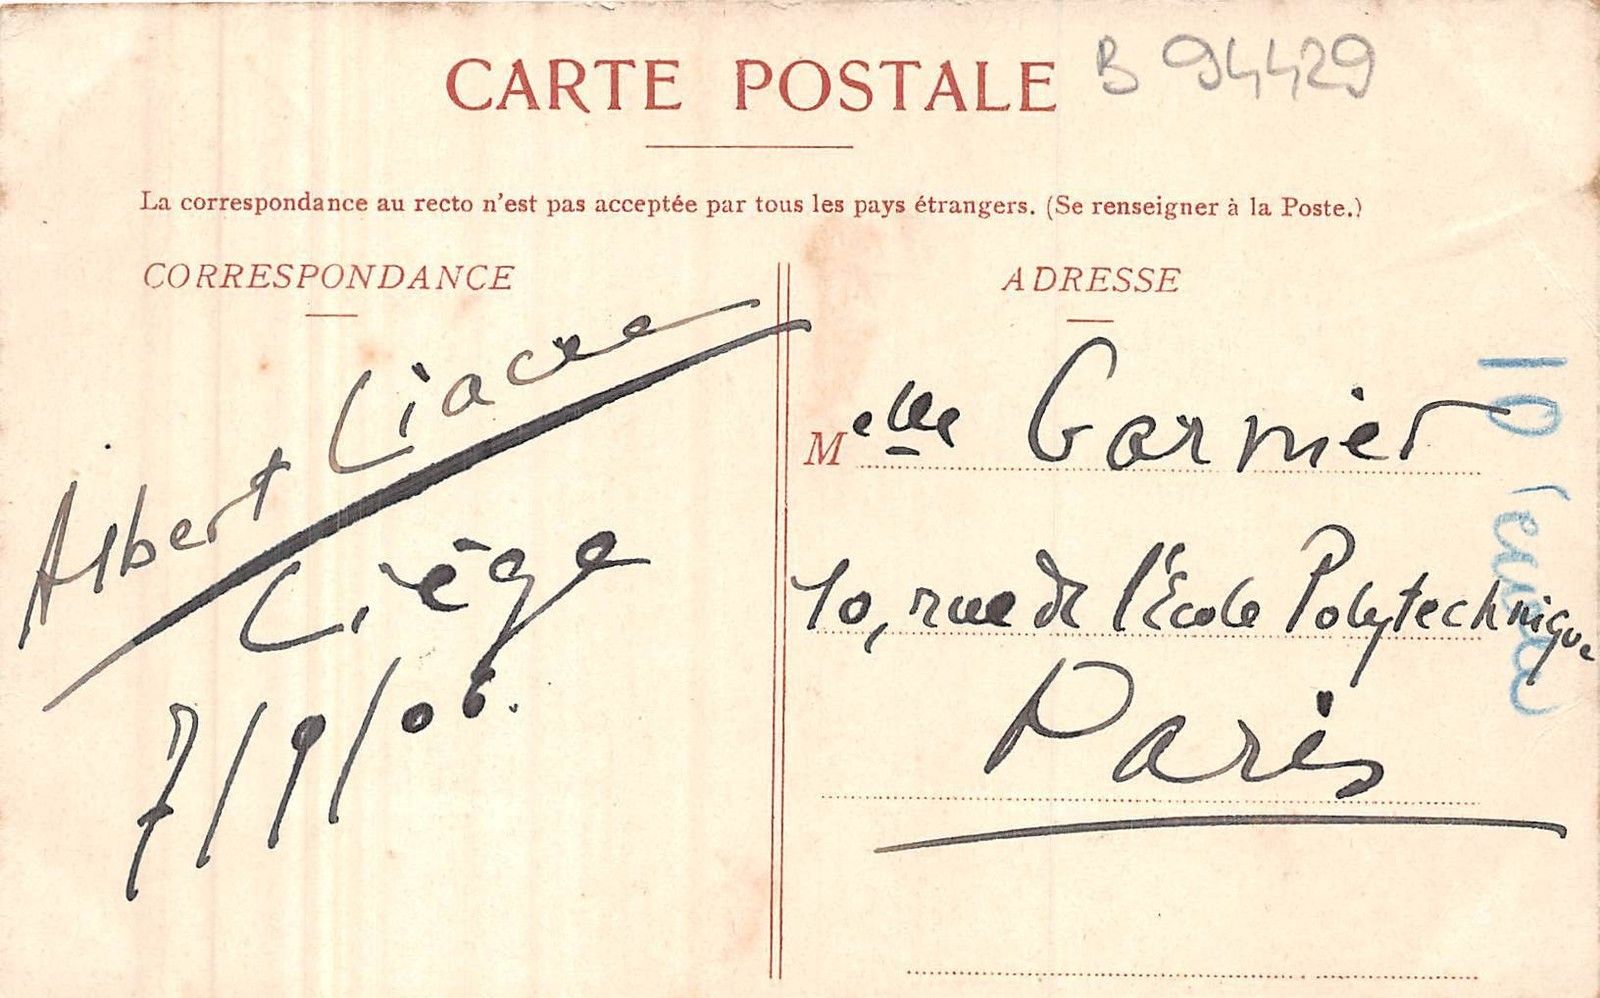 CARTE POSTALE
B 94429
La correspondance au recto n'est pas acceptée par tous les pays étrangers. (Se renseigner à la Poste.)
CORRESPONDANCE
Albert
Liège
7/9/06.
ADRESSE
Melle Garnier
10, rue de l'École Polytechnique
Paris
10